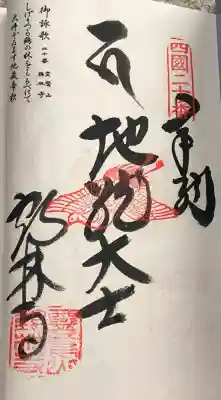 四國二十番
奉納
地蔵大士
鶴林寺
御詠歌
二十番
霊鷲山
鶴林寺
しげりつる鶴の林をしるべにて
大師ぞいます地蔵帝釈